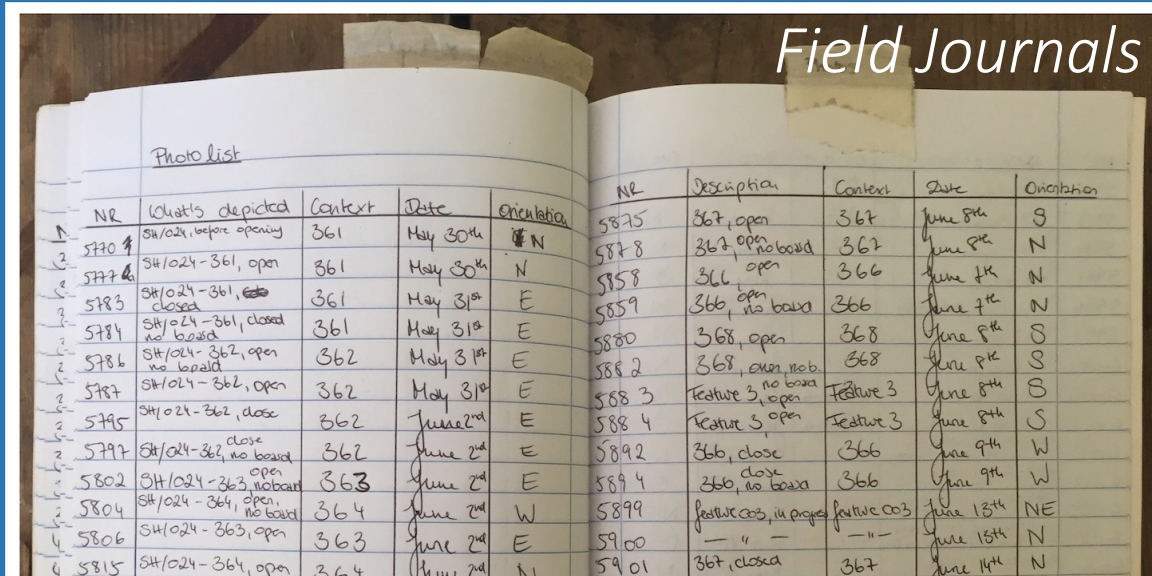 Field Journals
Photo list
NR What's depicted Context Date Orientation
5770 SH/024, before opening 361 May 30th N
5777 SH/024-361, open 361 May 30th N
5783 SH/024-361, closed 361 May 31st E
5784 SH/024-361, closed no board 361 May 31st E
5786 SH/024-362, open no board 362 May 31st E
5787 SH/024-362, open 362 May 31st E
5795 SH/024-362, close 362 June 2nd E
5797 SH/024-362, close no board 362 June 2nd E
5802 SH/024-363, open no board 363 June 2nd E
5804 SH/024-364, open, no board 364 June 2nd W
5806 SH/024-363, open 363 June 2nd E
5815 SH/024-364, open 364 June 2nd N
NR Description Context Date Orientation
5875 367, open 367 June 8th S
5878 367, open no board 367 June 8th N
5858 366, open 366 June 7th N
5859 366, open no board 366 June 7th N
5880 368, open 368 June 8th S
5882 368, open, no b. 368 June 8th S
5883 Feature 3, no board open Feature 3 June 8th S
5884 Feature 3, open Feature 3 June 8th S
5892 366, close 366 June 9th W
5894 366, close no board 366 June 9th W
5899 feature 003, in progress feature 003 June 13th NE
5900 — " — — " — June 13th N
5901 367, closed 367 June 14th N